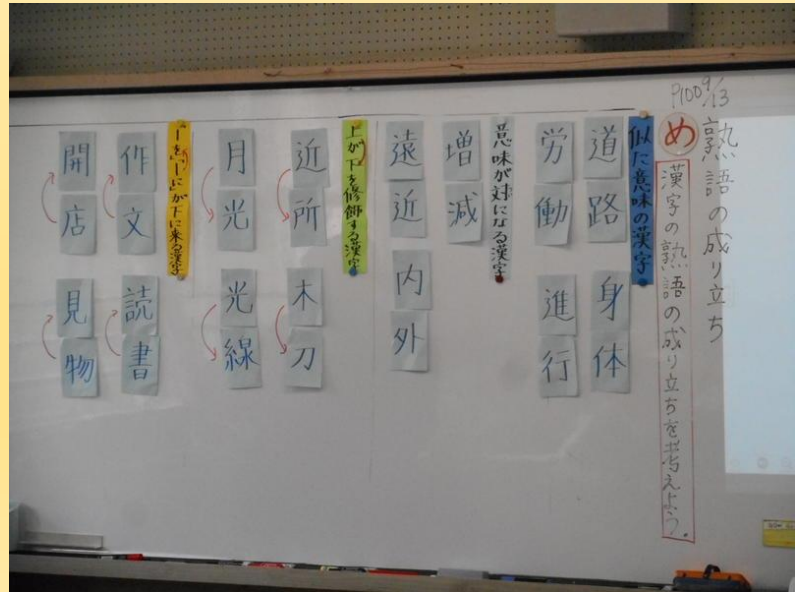 P100 9/13
熟語の成り立ち
め 漢字の熟語の成り立ちを考えよう。
似た意味の漢字
道路
身体
労働
進行
意味が対になる漢字
増減
遠近
内外
上が下を修飾する漢字
近所
木刀
月光
光線
「―を」「―に」が下に来る漢字
作文
読書
開店
見物